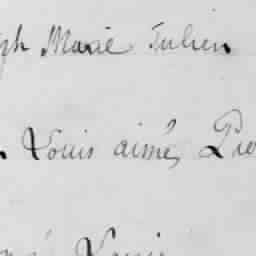 ph Marie Julien
Louis aimé, Pie
Louis